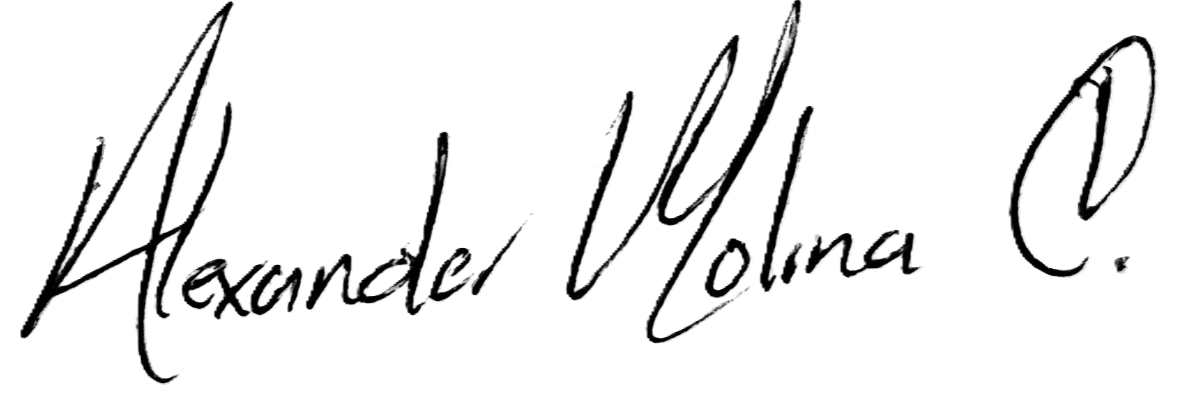 Alexander Molina C.